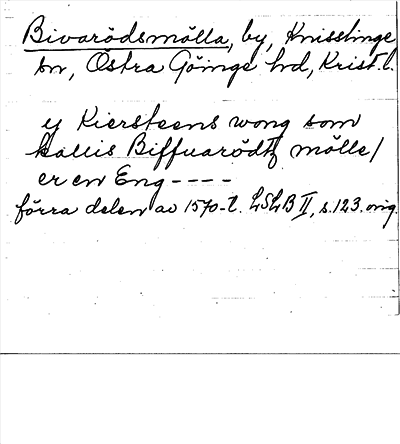 Bivarödsmölla, by, Knisslinge
sn, Östra Göinge hd, Krist. l.
y Kiersteens wong som
kallis Biffuarödtz mölle/
er en Eng ----
förra delen av 1570-t. LSLB II, s. 123. orig.